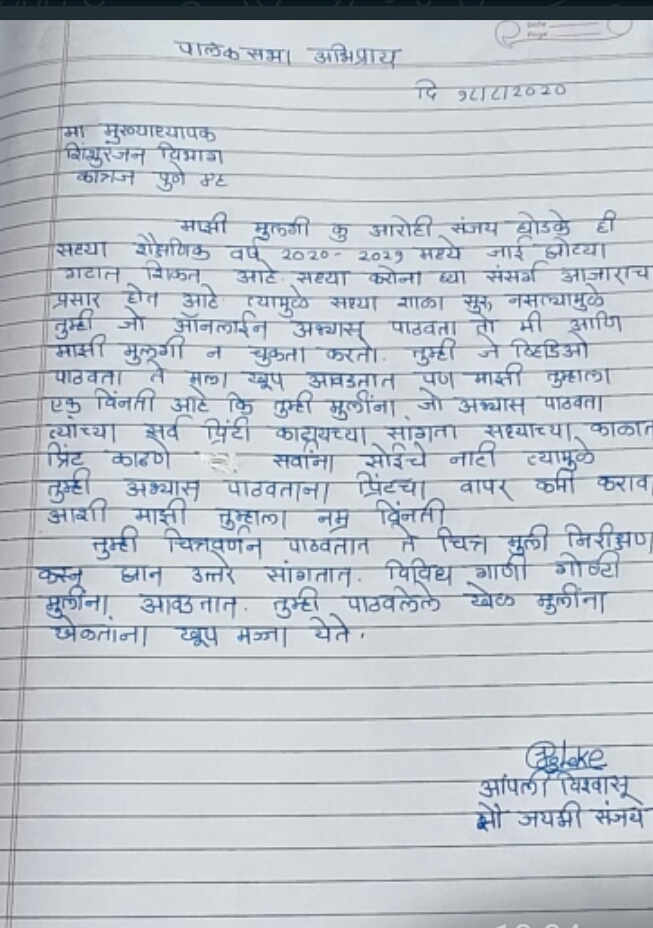 पालक सभा अभिप्राय
दि १८/८/2020
मा मुख्याध्यापक
शिशुरंजन विभाग
कात्रज पुणे ४६
माझी मुलगी कु आरोही संजय घोडके ही
सध्या शैक्षणिक वर्ष 2020-2029 मध्ये जाई छोट्या
गटात शिकत आहे. सध्या करोना ध्या संसर्ग आजाराच
प्रसार होत आहे त्यामुळे सध्या शाळा सुरु नसल्यामुळे
तुम्ही जो ऑनलाईन अभ्यास पाठवता तो मी आणि
माझी मुलगी न चुकता करतो. तुम्ही जे व्हिडिओ
पाठवता ते मला खूप आवडतात पण माझी तुम्हाला
एक विंनती आहे कि तुम्ही मुलींना जो अभ्यास पाठवता
त्याच्या सर्व प्रिंटी काढायच्या सांगता सध्याच्या काळात
प्रिंट काढणे सर्वांना सोईचे नाही त्यामुळे
तुम्ही अभ्यास पाठवताना प्रिंटचा वापर कमी कराव
आशी माझी तुम्हाला नम्र विंनती
तुम्ही चित्रवर्णन पाठवतात ते चित्र मुली निरीक्षण
करून छान उत्तरे सांगतात. विविध गाणी गोष्टी
मुलींना आवडतात. तुम्ही पाठवलेले खेळ मुलींना
खेळतांना खूप मज्जा येते.
आपली विश्वासू
सौ जयश्री संजय